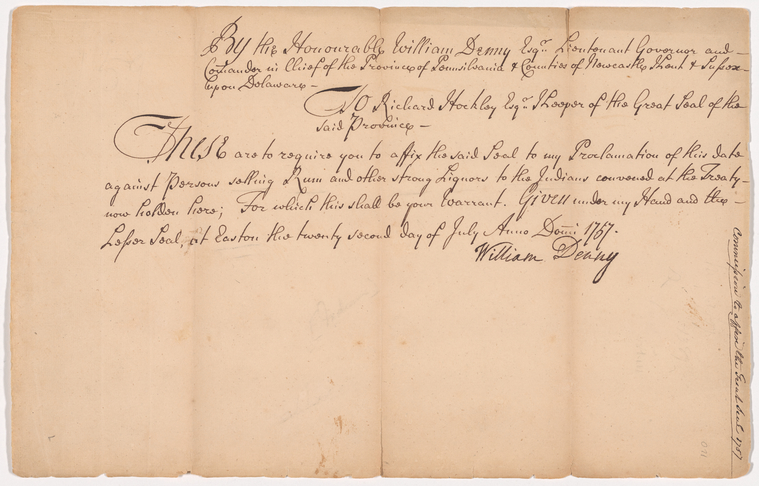 By the Honourable William Denny Esqr. Lieutenant Governor and
Comander in Chief of the Province of Pennsilvania & Counties of Newcastle Kent & Sussex
upon Delaware
To Richard Hockley Esqr. Keeper of the Great Seal of the
said Province
These are to require you to affix the said Seal to my Proclamation of this date
against Persons selling Rum and other strong Liquors to the Indians convened at the Treaty
now holden here; For which this shall be your Warrant. Given under my Hand and the
Lesser Seal, at Easton the twenty second day of July Anno Domi 1757.
William Denny
Commission to affix the Great Seal 1757